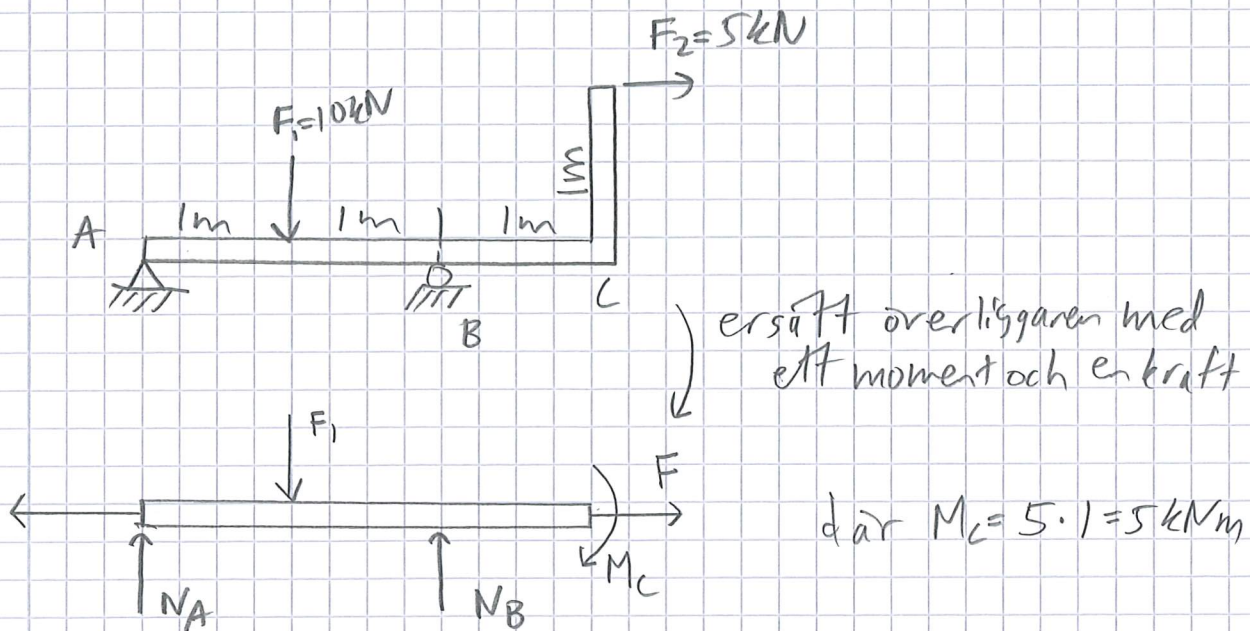 F₂=5kN
F₁=10kN
1m
A
1m
1m
1m
B
C
ersätt överliggaren med
ett moment och en kraft
F₁
F
där M_C=5·1=5kNm
M_C
N_A
N_B